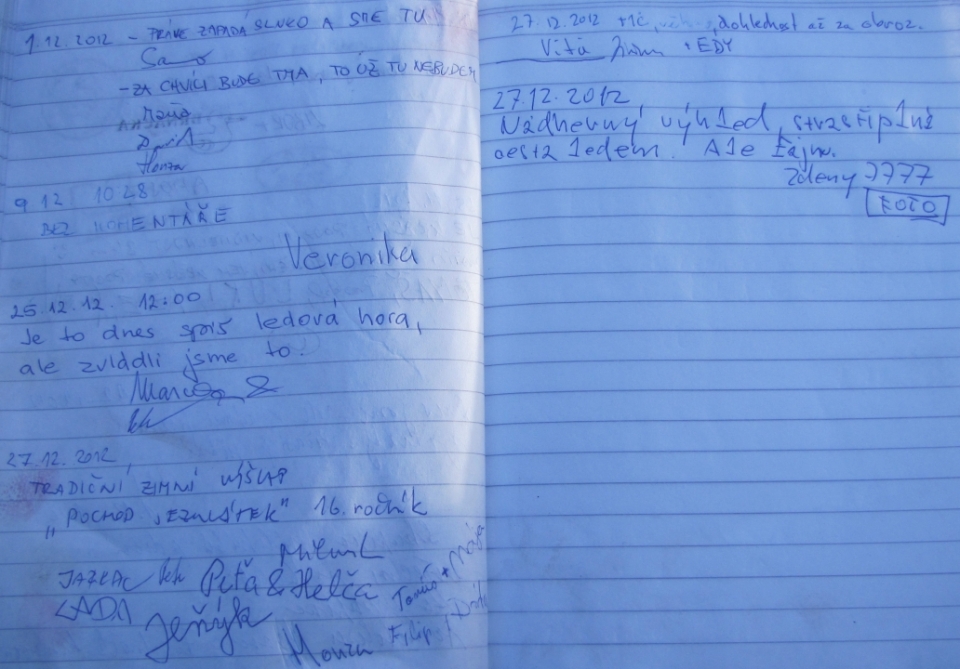 1.12.2012 – PRÁVE ZAPADÁ SLUKO A SME TU
– ZA CHVÍLI BUDE TMA, TO UŽ TU NEBUDEM
Honza
9 12 10:28
BEZ KOMENTÁŘE
Veronika
25.12.12. 12:00
Je to dnes spíš ledová hora,
ale zvládli jsme to.
27.12.2012
TRADIČNÍ ZIMNÍ VÝŠLAP
„POCHOD JEZULÁTEK" 16. ročník
Peťa & Helča
LADA
Jeňýk
Tomáš + Mája
Filip
Honza
27.12.2012 dohlednost až za obroz.
Víťa + EDY
27.12.2012
Nádherný výhled, strastiplná
cesta ledem. Ale fajn.
Zdeny 7777
FOTO